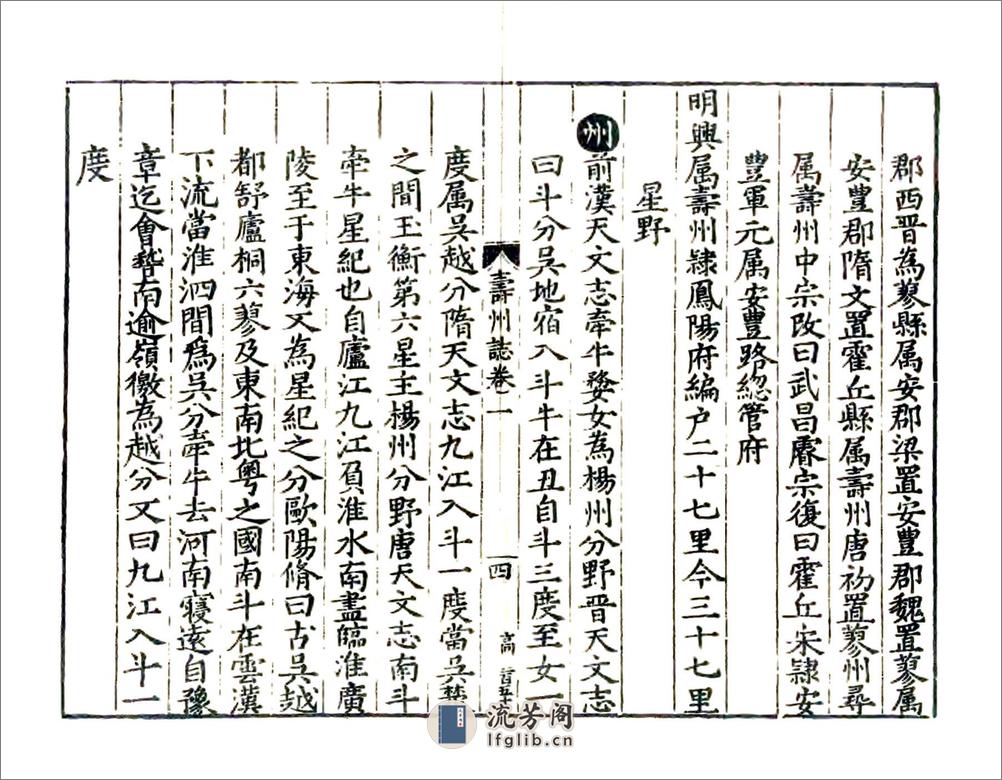 郡西晋為蓼縣属安郡梁置安豐郡魏置蓼属
安豐郡隋文置霍丘縣属壽州唐初置蓼州尋
属壽州中宗改曰武昌睿宗復曰霍丘宋隷安
豐軍元属安豐路總管府
明興属壽州隷鳳陽府編户二十七里今三十七里
星野
州前漢天文志牽牛婺女為楊州分野晋天文志
曰斗分吳地宿入斗牛在丑自斗三度至女一
壽州誌卷一
四
高
度属吳越分隋天文志九江入斗一度當吳楚
之間玉衡第六星主楊州分野唐天文志南斗
牽牛星紀也自廬江九江負淮水南盡臨淮廣
陵至于東海又為星紀之分歐陽脩曰古吳越
都舒廬桐六蓼及東南北粤之國南斗在雲漢
下流當淮泗間爲吳分牽牛去河南寖遠自豫
章迄會嵇南逾嶺徼為越分又曰九江入斗一
度
流芳阁
lfglib.cn